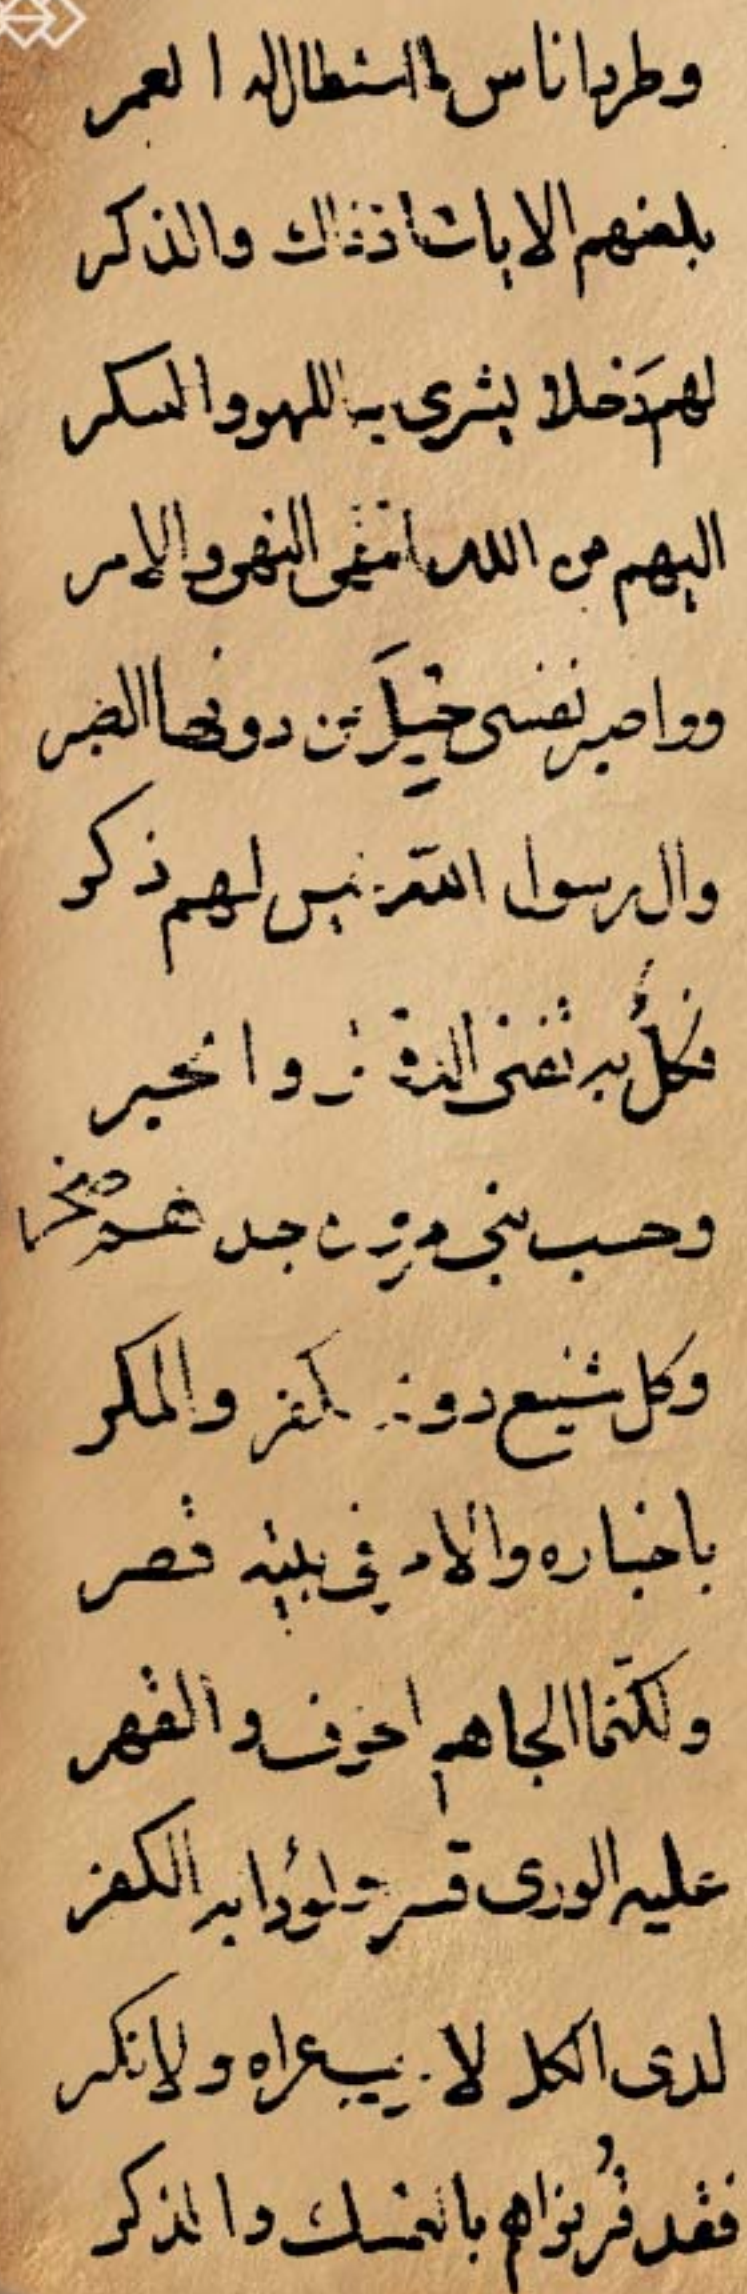 وطردا ناس ما استطال له العمر
بلعنهم الايات اذ ذاك والذكر
لهم دخلا يشرى به اللهو والسكر
اليهم من الله انتهى النهى والامر
وواصبر نفسى حيل من دونها الصبر
وال رسول الله ليس لهم ذكر
فكل به تفنى الدفاتر والحبر
وحسب بنى مروان جدهم صخر
وكل شنيع دونه الكفر والمكر
باخباره والامر فى بيته قصر
ولكنما الجاهم الخوف والقهر
عليه الورى قسر ولو دابه الكفر
لدى الكل لا ريب عراه ولا نكر
فقد قرنوا هم بالتمسك والذكر